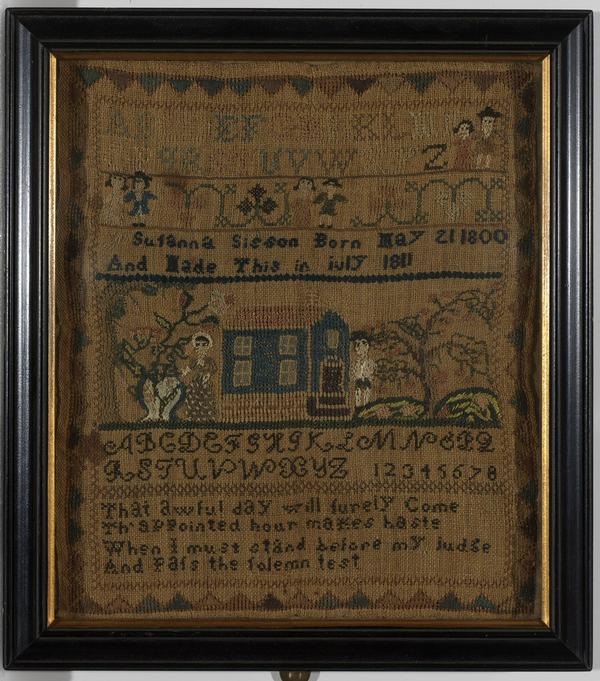 AB EF KLM
UVW Z
Susanna Sisson Born May 21 1800
And Made This in iuly 1811
ABCDEFGHIKLMNOPQ
RSTUVWXYZ 12345678
That awful day will surely Come
Th'appointed hour makes haste
When I must stand before my iudge
And Pass the solemn test